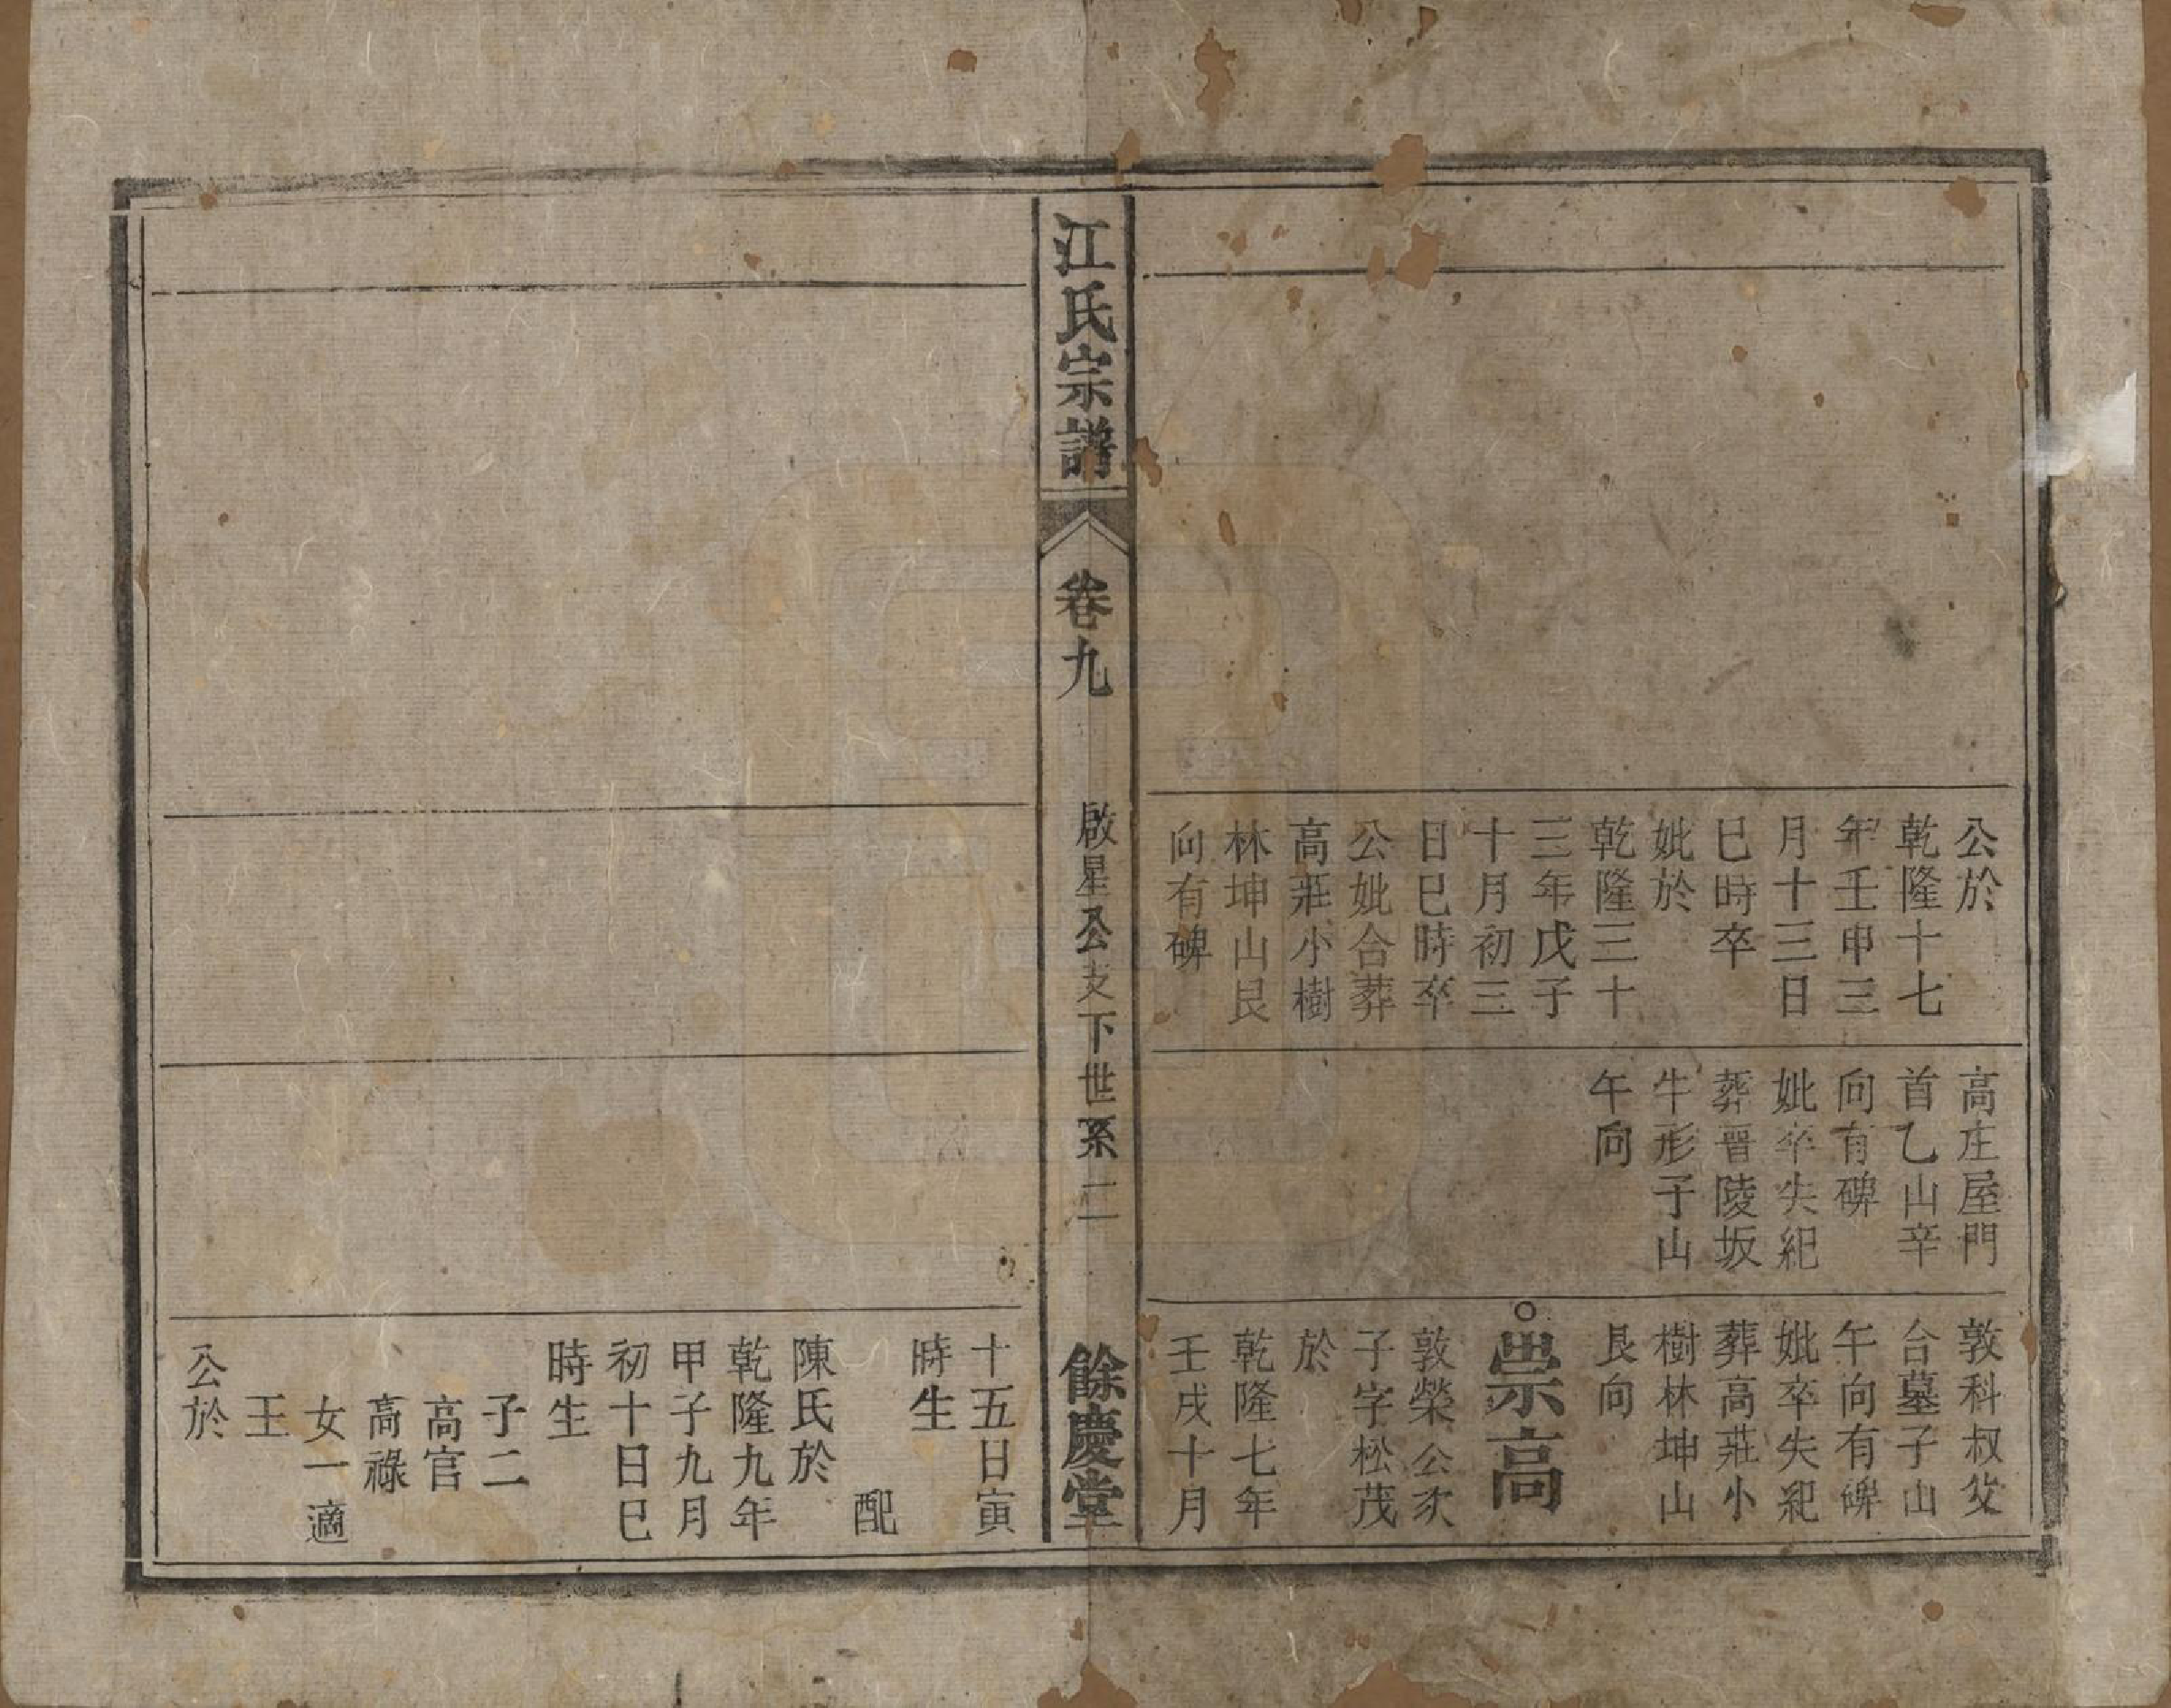 公於
乾隆十七
年壬申三
月十三日
巳時卒
妣於
乾隆三十
三年戊子
十月初三
日巳時卒
公妣合葬
高莊小樹
林坤山艮
向有碑
高庄屋門
首乙山辛
向有碑
妣卒失紀
葬晋陵坂
牛形子山
午向
敦科叔父
合墓子山
午向有碑
妣卒失紀
葬高莊小
樹林坤山
艮向
崇高
敦榮公次
子字松茂
於
乾隆七年
壬戌十月
江氏宗譜
卷九
啟星公支下世系
二
餘慶堂
十五日寅
時生
配
陳氏於
乾隆九年
甲子九月
初十日巳
時生
子二
高官
高祿
女一適
王
公於